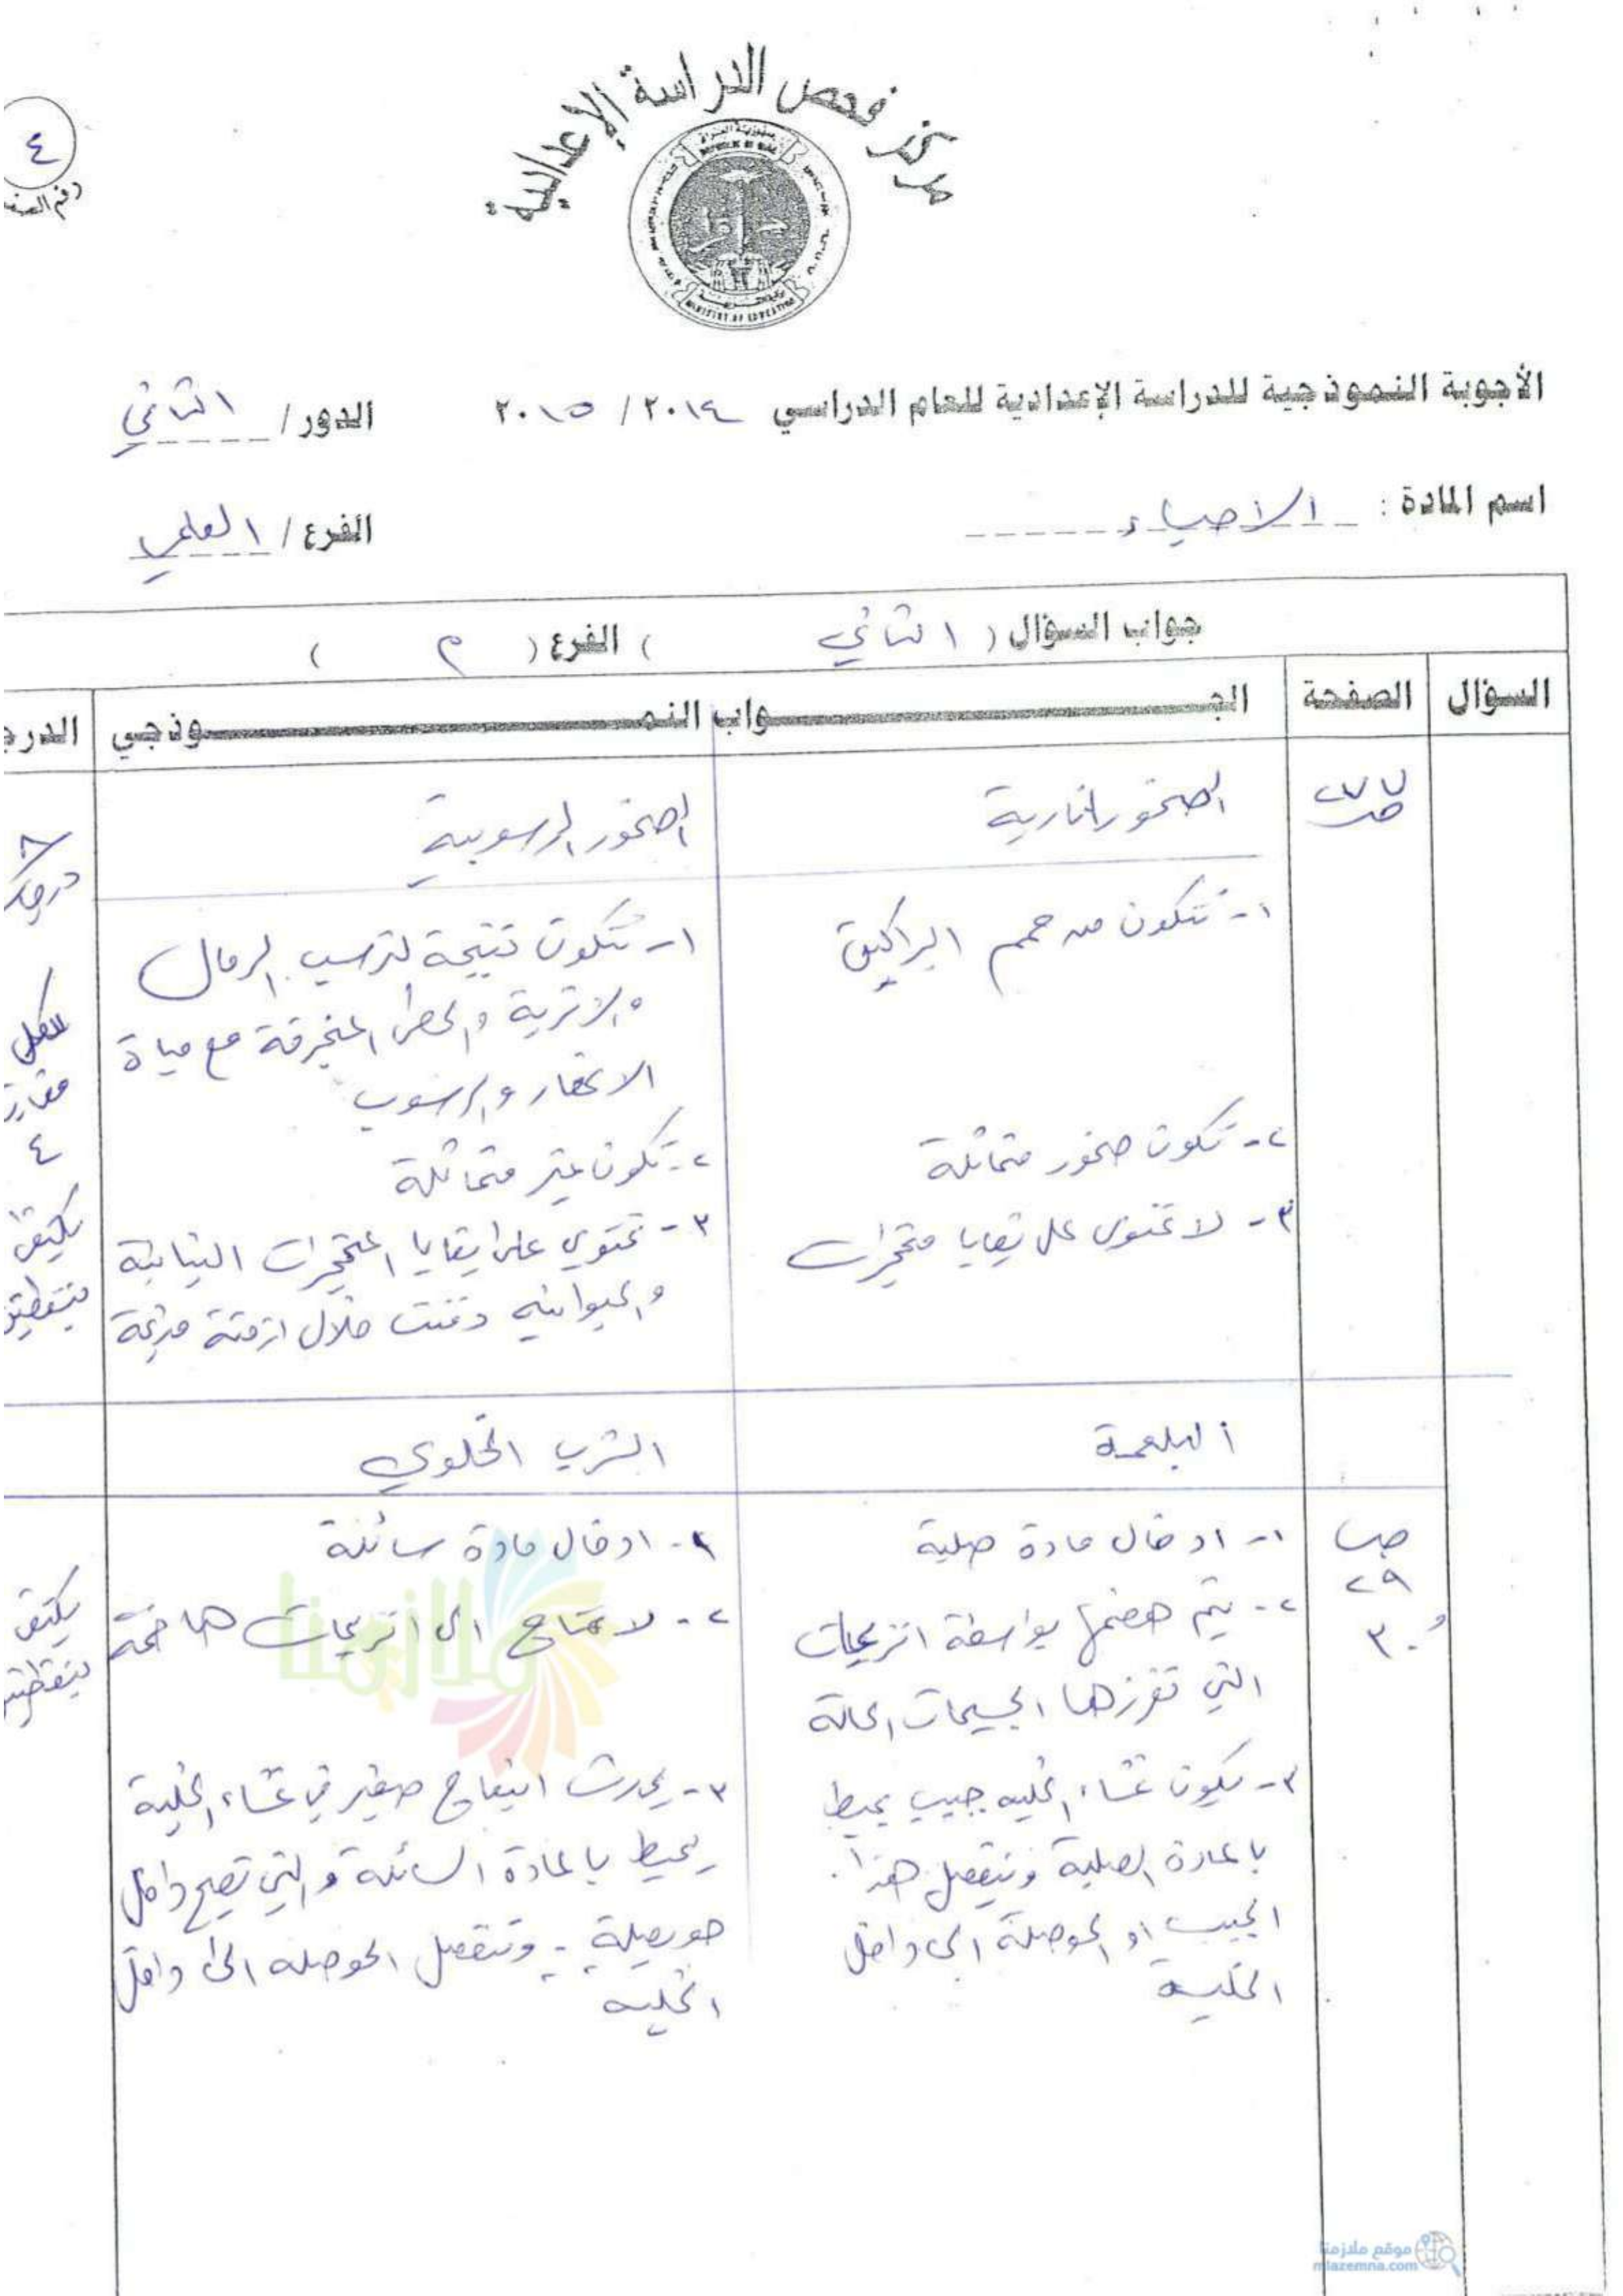 مركز فحص الدراسة الإعدادية
جمهورية العراق
REPUBLIC OF IRAQ
MINISTRY OF EDUCATION
٤
رقم الصف
الأجوبة النموذجية للدراسة الإعدادية للعام الدراسي ٢٠١٤ / ٢٠١٥ الدور / الثاني
اسم المادة : الاحياء الفرع / العلمي
جواب السؤال ( الثاني ) الفرع ( م )
السؤال الصفحة الجـــواب النمـــوذجي الدرج
ص ٢٧٧
الصخور النارية
١- تتكون من حمم البراكين
٢- تكون صخور متماثلة
٣- لا تحتوي على بقايا متحجرات
الصخور الرسوبية
١- تتكون نتيجة لترسب الرمال
والاتربة والحصى المنجرفة مع مياة
الانهار والرسوب
٢- تكون غير متماثلة
٣- تحتوي على بقايا المتحجرات النباتية
والحيوانيه دفنت خلال ازمنة قديمة
٨
درجات
لكل
مقار
٤
يكتفى
بنقطتين
ص
٢٩
و ٣٠
البلعمة
١- ادخال مادة صلبة
٢- يتم هضمها بواسطة انزيمات
التي تفرزها الجسيمات الحالة
٣- يكون غشاء الخليه جيب يحيط
بالمادة الصلبة وينفصل هذا
الجيب او الحوصلة الى داخل
الخلية
الشرب الخلوي
١- ادخال مادة سائلة
٢- لا تحتاج الى انزيمات هاضمة
٣- يحدث انبعاج صغير في غشاء الخلية
يحيط بالمادة السائلة والتي تصبح داخل
حويصلة - وتنفصل الحوصله الى داخل
الخليه
يكتفى
بنقطتين
ملازمنا
موقع ملازمنا
mlazemna.com